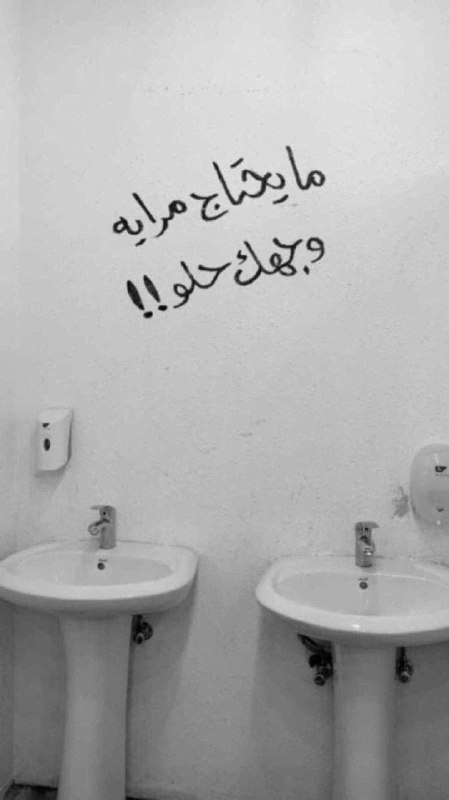 ما يحتاج مرايه
وجهك حلو!!